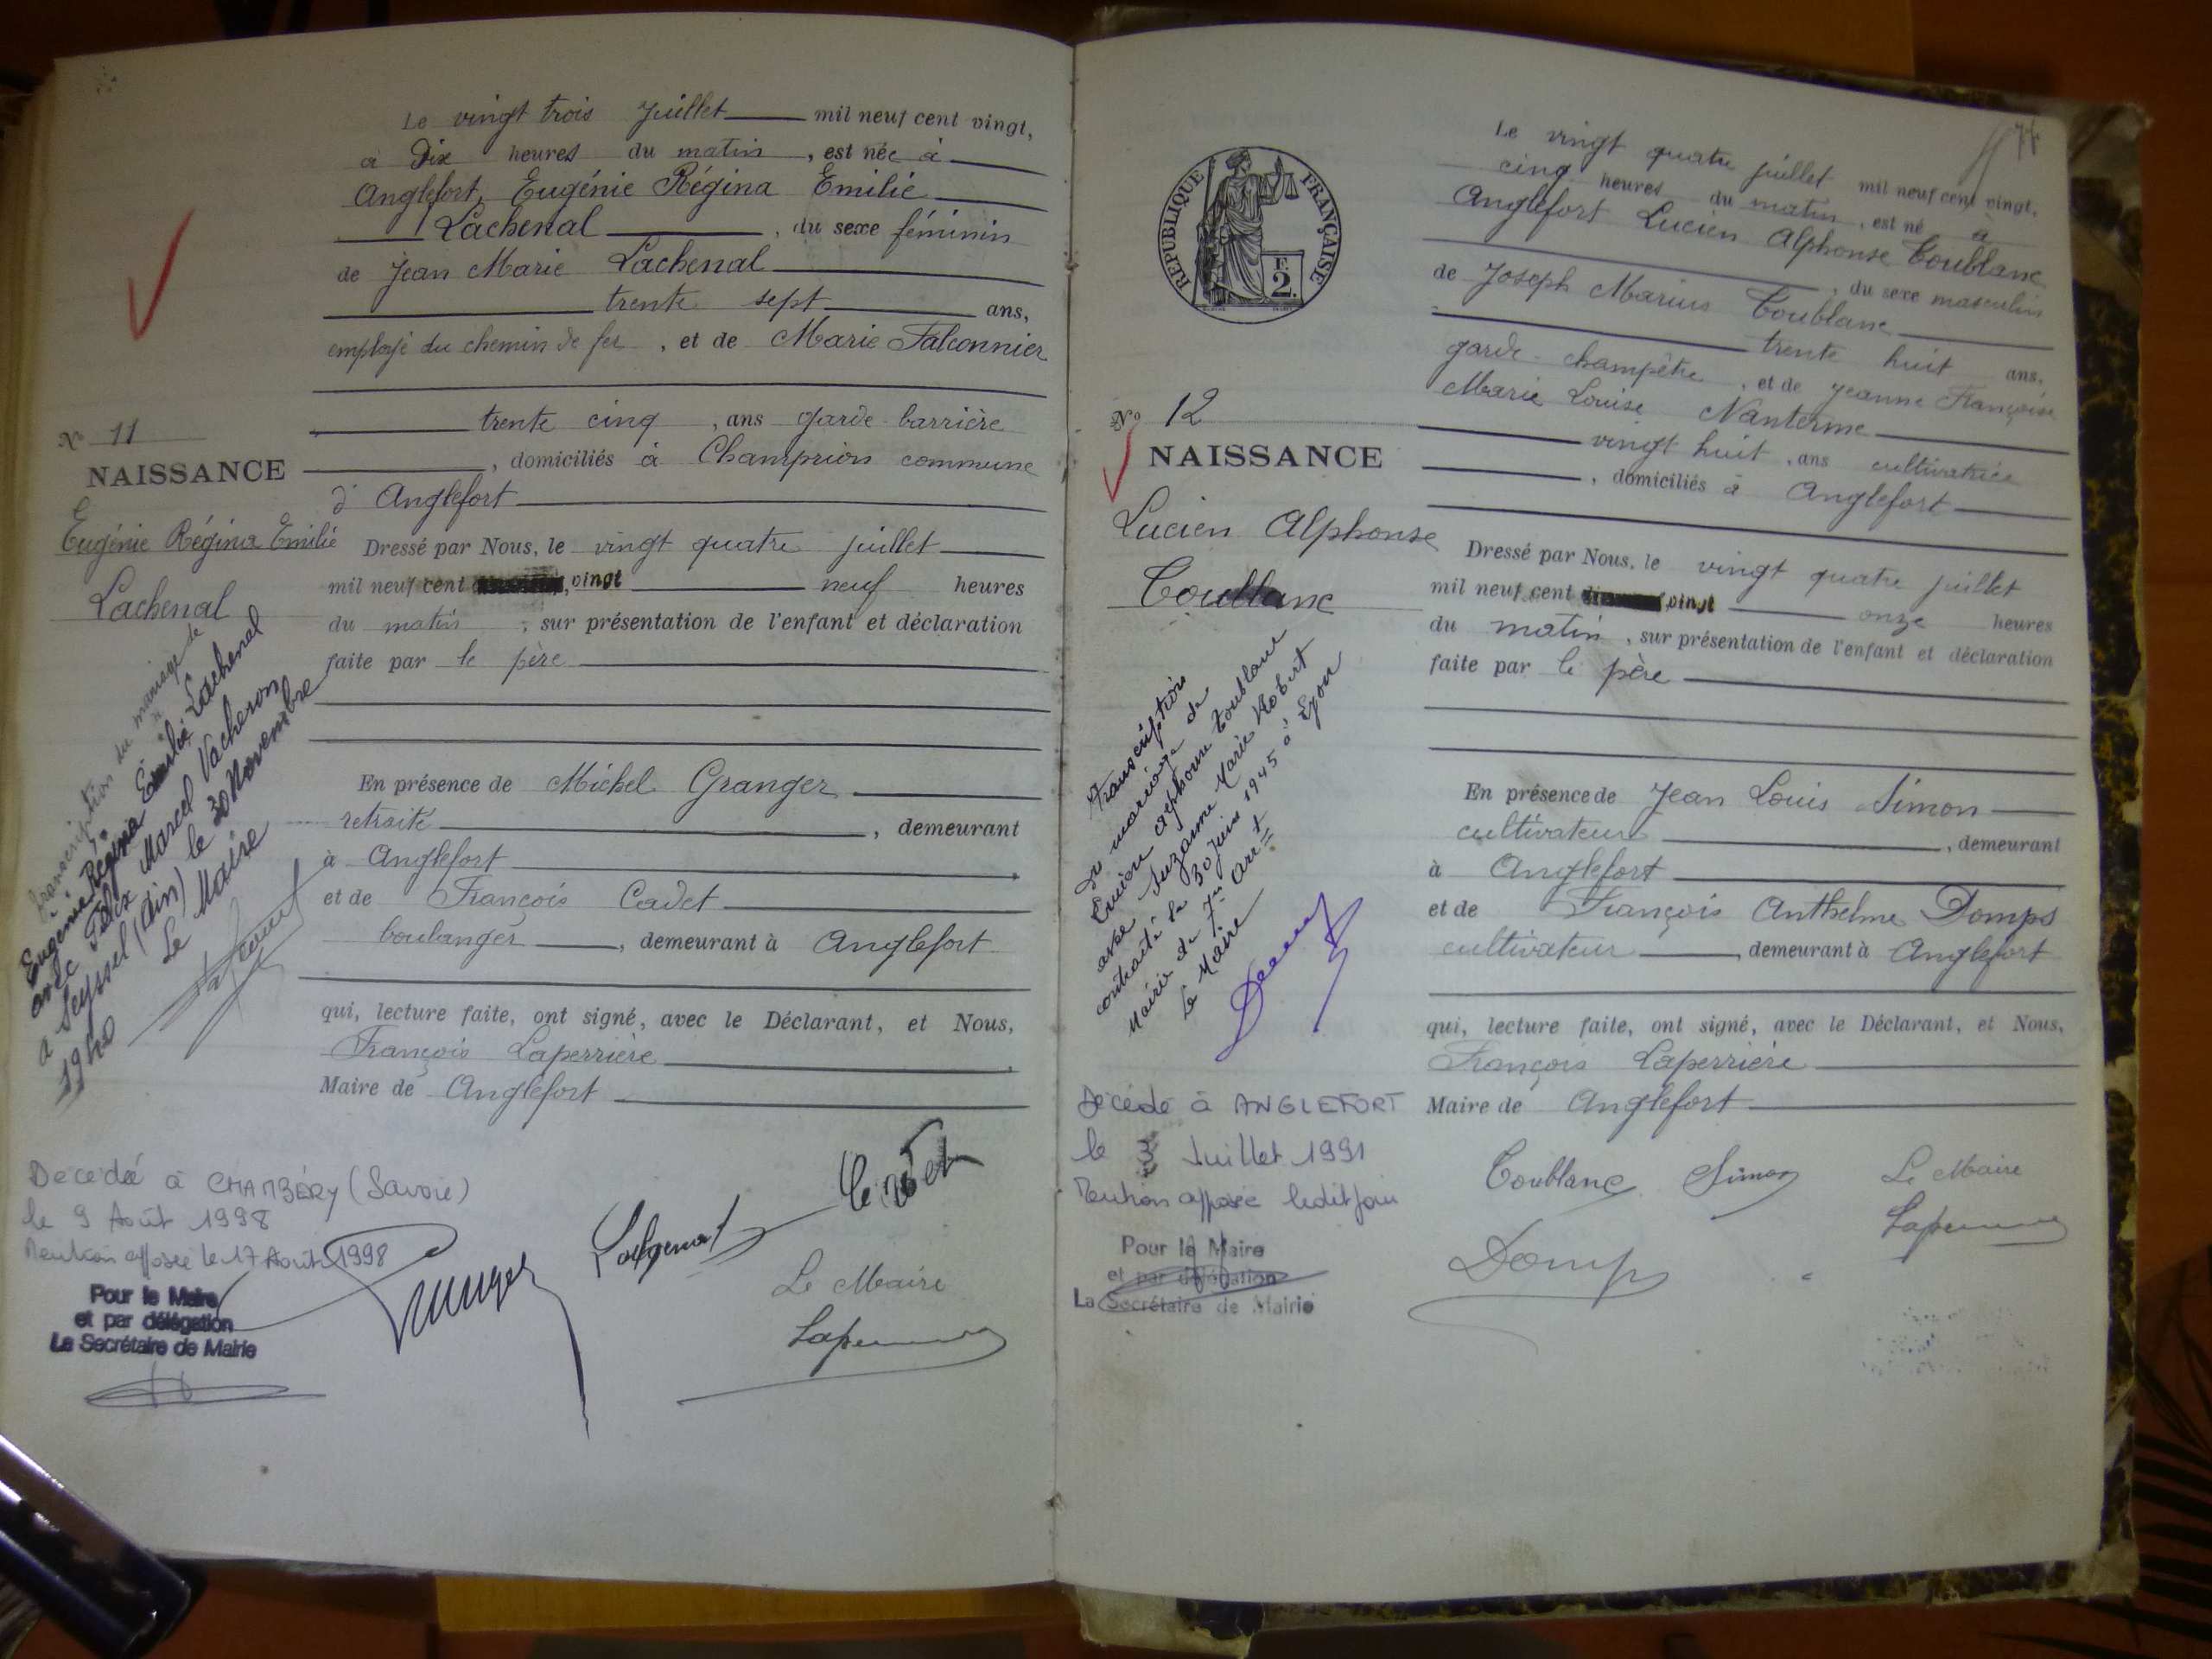 Le vingt trois Juillet mil neuf cent vingt,
à Dix heures du matin, est née à
Anglefort, Eugénie Régina Emilie
Lachenal, du sexe féminin
de Jean Marie Lachenal
trente sept ans,
employé du chemin de fer, et de Marie Falconnier
trente cinq, ans garde-barrière
, domiciliés à Champrion commune
d'Anglefort
Nº 11
NAISSANCE
Eugénie Régina Emilie
Lachenal
Dressé par Nous, le vingt quatre juillet
mil neuf cent vingt neuf heures
du matin, sur présentation de l'enfant et déclaration
faite par le père
transcription du mariage de
Eugénie Régina Emilie Lachenal
avec Félix Marcel Vacheron
a Seyssel (Ain) le 30 Novembre
1940 Le Maire
En présence de Michel Granger
retraité, demeurant
à Anglefort
et de François Cadet
boulanger, demeurant à Anglefort
qui, lecture faite, ont signé, avec le Déclarant, et Nous,
François Laperrière
Maire de Anglefort
Décédée à CHAMBÉRY (Savoie)
le 9 Août 1998
Mention apposée le 17 Août 1998
Pour le Maire
et par délégation
La Secrétaire de Mairie
Le Maire
REPUBLIQUE FRANÇAISE
F.
2.
Le vingt quatre juillet mil neuf cent vingt,
cinq heures du matin, est né à
Anglefort Lucien Alphonse Toublanc
, du sexe masculin
de Joseph Marius Toublanc
trente huit ans,
garde-champêtre, et de Jeanne Françoise
Marie Louise Nanterme
vingt huit, ans cultivatrice
, domiciliés à Anglefort
Nº 12
NAISSANCE
Lucien Alphonse
Toublanc
Dressé par Nous, le vingt quatre juillet
mil neuf cent vingt onze heures
du matin, sur présentation de l'enfant et déclaration
faite par le père
Transcription
du mariage de
Lucien Alphonse Toublanc
avec Suzanne Marie Robert
contracté le 30 juin 1945 à Lyon
Mairie du 7me Arrt
Le Maire
En présence de Jean Louis Simon
cultivateur, demeurant
à Anglefort
et de François Anthelme Domps
cultivateur, demeurant à Anglefort
qui, lecture faite, ont signé, avec le Déclarant, et Nous,
François Laperrière
Maire de Anglefort
Décédé à ANGLEFORT
le 3 Juillet 1991
Mention apposée ledit jour
Pour le Maire
et par délégation
La Secrétaire de Mairie
Toublanc Simon Le Maire
Domps